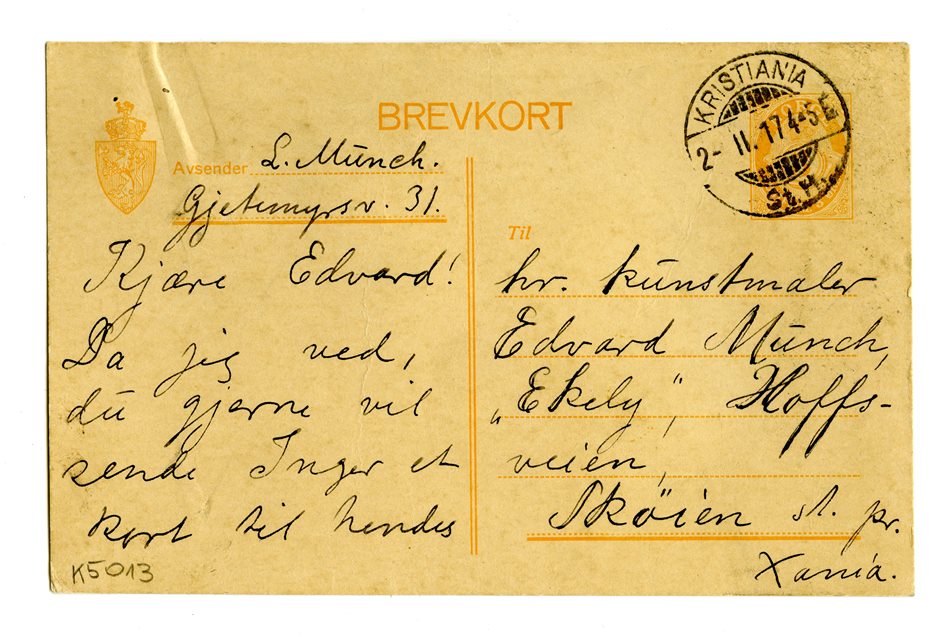 BREVKORT
Avsender L. Münch.
Gjetemyrsv. 31.
Kjære Edvard!
Da jeg ved,
du gjerne vil
sende Inger et
kort til hendes
K5013
KRISTIANIA
2- II. 17 4-5 E
St. H.
Til
hr. kunstmaler
Edvard Münch,
„Ekely", Hoffs-
veien,
Sköien st. pr.
Xania.